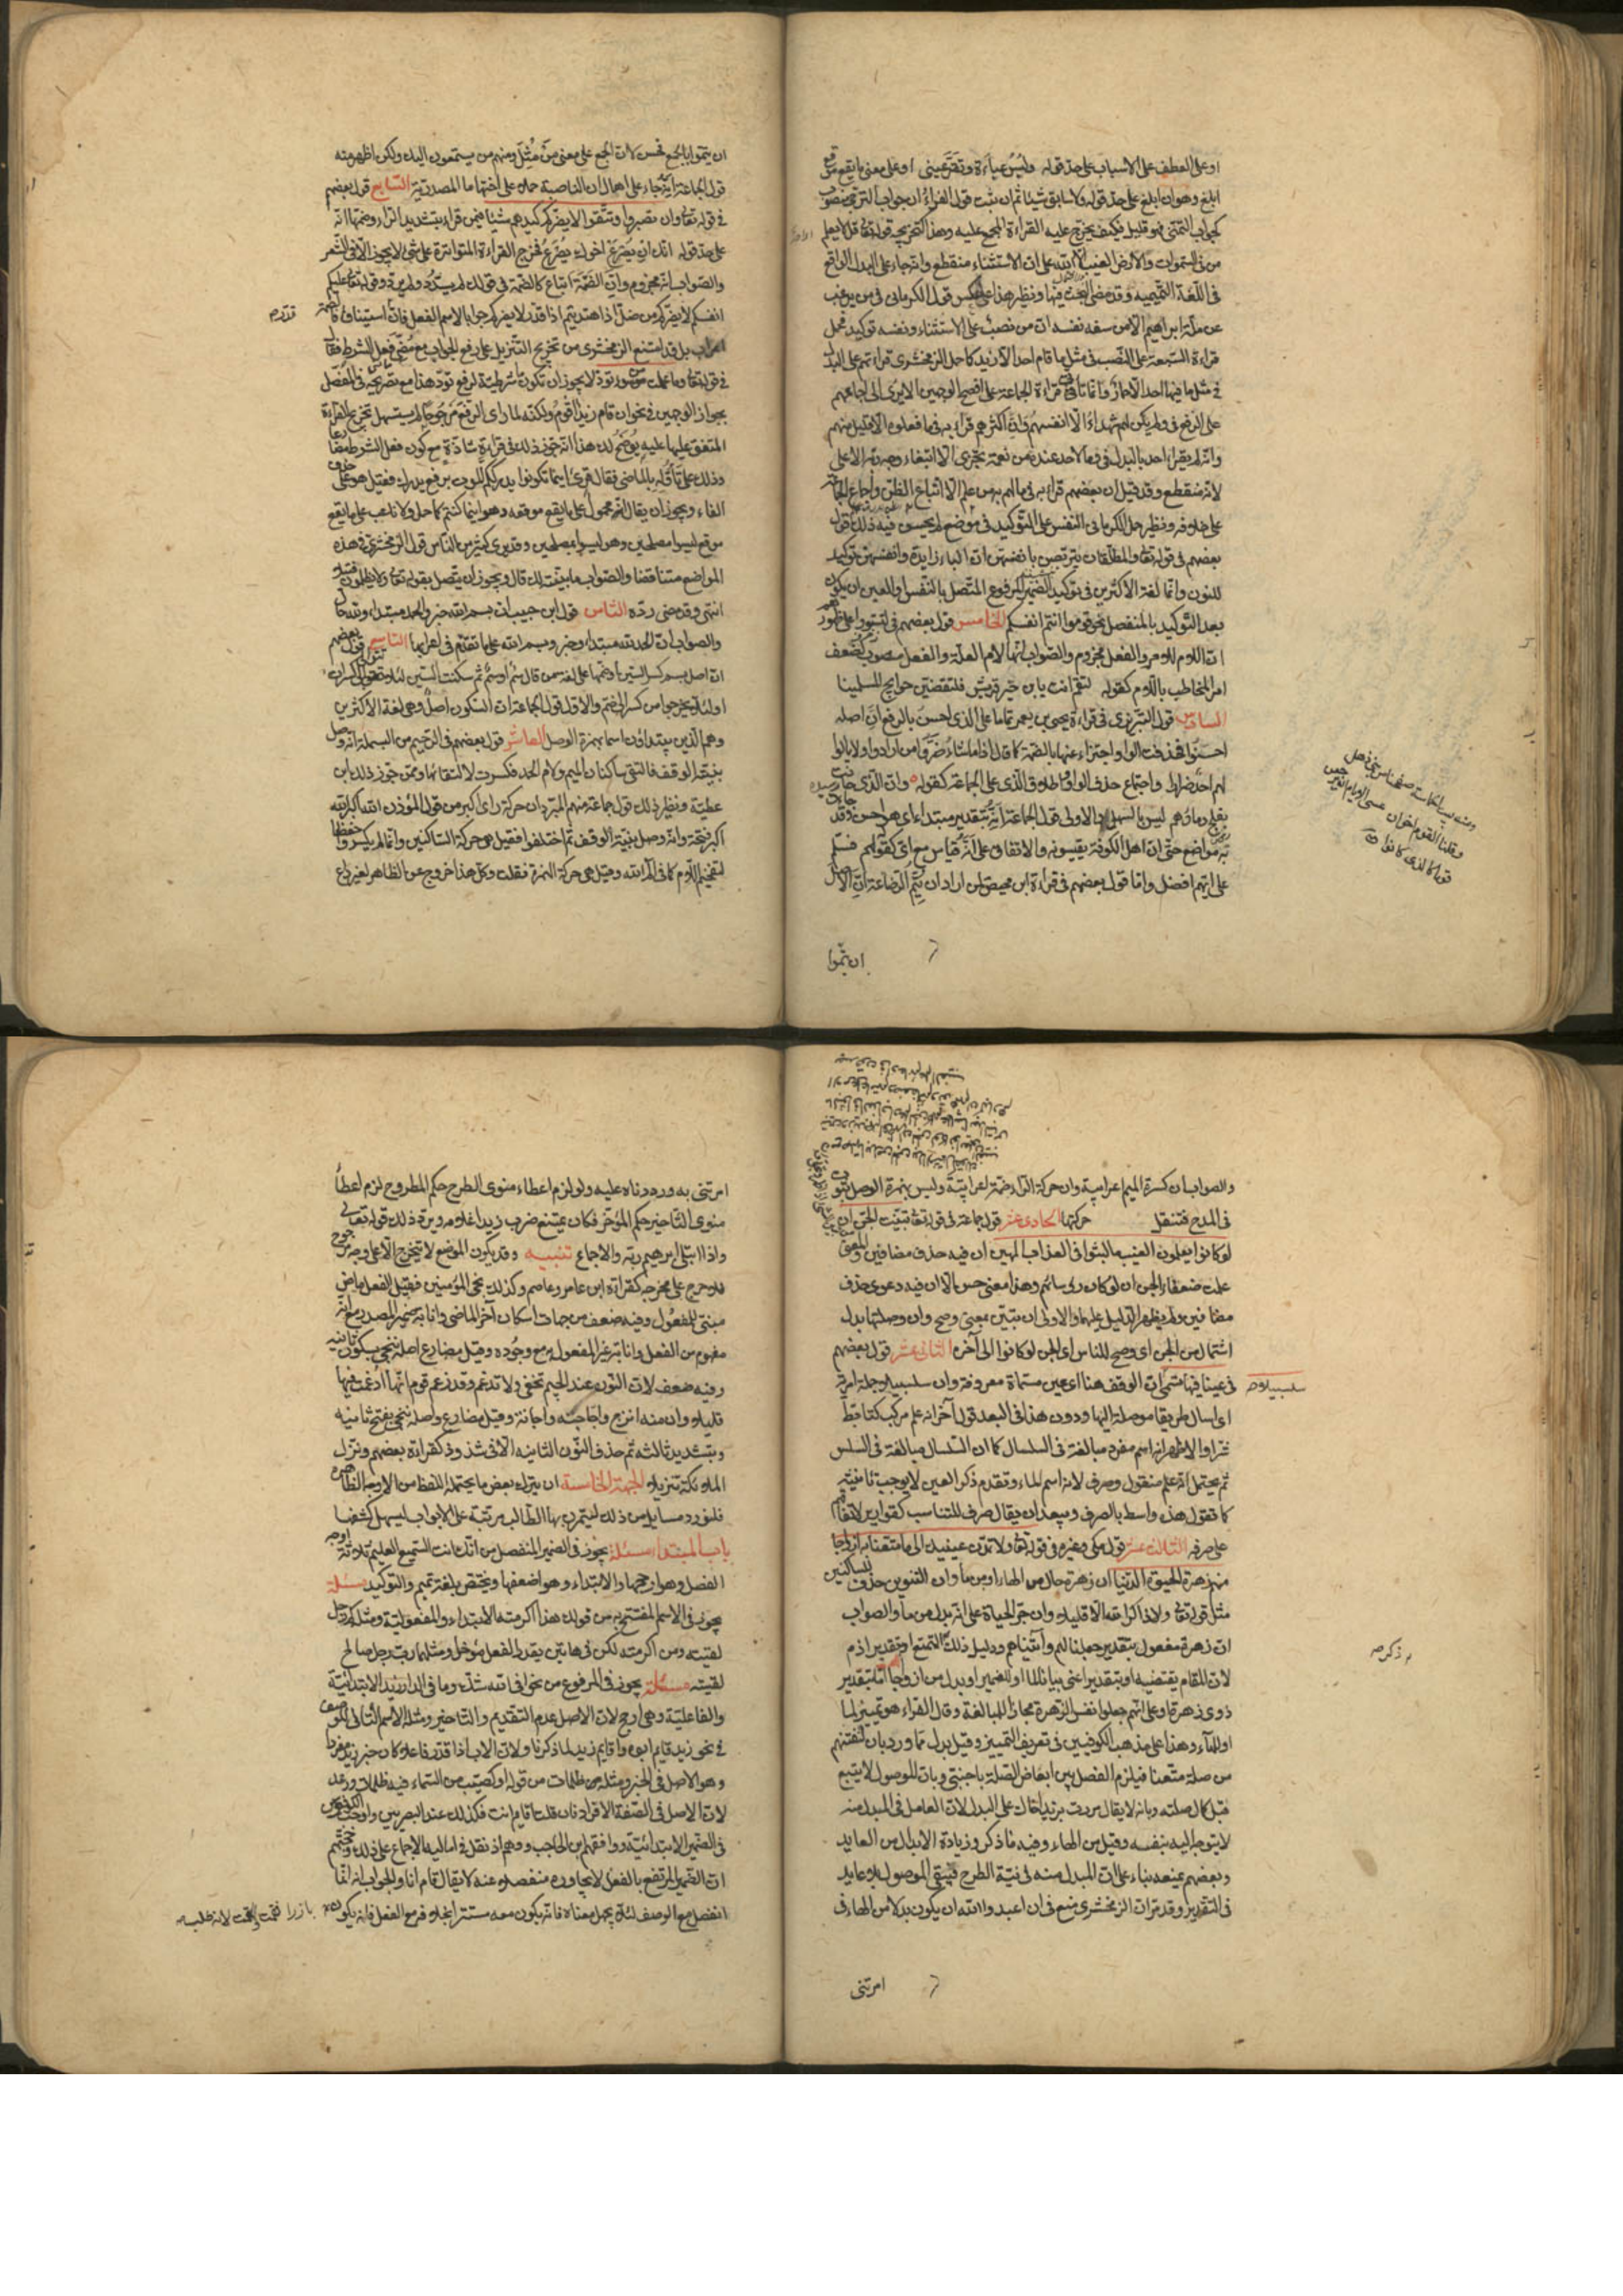 او على العطف على الاسباب على حد قوله ولبس عباءة وتقر عيني او على معنى ما يقع موقع
ابلغ وهو ان ابلغ على حد قوله ولا سابق شيئا ثم ان ثبت قول الفراء ان جواب الترجى منصوب
كجواب التمنى فهو قليل فكيف يخرج عليه القراءة المجمع عليه وهذا كتخريجه قوله تعالى قل لا يعلم
من في السموات والارض الغيب الا الله على ان الاستثناء منقطع وانه جاء على البدل الواقع
في اللغة التميمية وقد مضى البحث فيها ونظير هذا على العكس قول الكرماني في من يرغب
عن ملة ابراهيم الا من سفه نفسه ان من نصب على الاستثناء ونفسه توكيد فحمل
قراءة السبعة على النصب في مثل ما قام احد الا زيد كما حمل الزمخشرى قراءتهم على البدل
في مثل ما فيها احد الا حمار وانما تأتى قراءة الجماعة على افصح الوجهين الا يرى الى اجماعهم
على الرفع في ولم يكن لهم شهداء الا انفسهم وان اكثرهم قراء به في ما فعلوه الا قليل منهم
وانه لم يقراء احد بالبدل في وما لاحد عنده من نعمة تجزى الا ابتغاء وجه ربه الاعلى
لانه منقطع وقد قيل ان بعضهم قراء به في ما لهم به من علم الا اتباع الظن واجماع الجماعة
على خلافه ونظير حمل الكرماني النفس على التوكيد في موضع لم يحسن فيه ذلك قول
بعضهم في قوله تعالى والمطلقات يتربصن بانفسهن ان الباء زايدة وانفسهن توكيد
للنون وانما لغة الاكثرين في توكيد الضمير المرفوع المتصل بالنفس والعين ان يكون
بعد التوكيد بالمنفصل نحو قوموا انتم انفسكم الخامس قول بعضهم في لتستووا على ظهوره
ان اللام للامر والفعل مجزوم والصواب انها لام العلة والفعل منصوب لضعف
امر المخاطب باللام كقوله لتقم انت يا ابن خير قريش فلتقضين حوايج المسلمينا
السادس قول التبريزى في قراءة يحيى بن يعمر تماما على الذي احسن بالرفع ان اصله
احسنوا فحذفت الواو اجتزاء عنها بالضمة كما قال اذا ما شاء ضروا من ارادوا ولا يالوا
لهم احد ضرارا واجتماع حذف الواو واطلاق الذي على الجماعة كقوله وان الذي حانت
بفلج دماؤهم ليس بالسهل والاولى قول الجماعة انه بتقدير مبتداء اي هو احسن وقد
مواضع حتى ان اهل الكوفة يقيسونه والاتفاق على انه قياس مع اي كقولهم فسلم
على ايهم افضل واما قول بعضهم في قراءة ابن محيصن لمن اراد ان يتم الرضاعة ان الاصل
ان يتموا
ان يتموا بالجمع فحسن لان الجمع على معنى من مثل ومنهم من يستمعون اليك ولكن اظهر منه
قول الجماعة انه جاء على اهمال ان الناصبة حملا على اختها ما المصدرية السابع قول بعضهم
في قوله تعالى وان تصبروا وتتقوا لا يضركم كيدهم شيئا فيمن قراء بتشديد الراء وضمها انه
على حد قوله انك ان يصرع اخوك تصرع فخرج القراءة المتواترة على شئ لا يجوز الا في الشعر
والصواب انه مجزوم وان الضمة اتباع كالضمة في قولك لم يشد ولم يرد وقوله تعالى عليكم
انفسكم لا يضركم من ضل اذا اهتديتم اذا قدر لا يضركم جوابا لاسم الفعل فان استينافا فالضمة
اعراب بل قد امتنع الزمخشرى من تخريج التنزيل على رفع الجواب مع مضى فعل الشرط فقال
في قوله تعالى وما عملت من سوء تود لا يجوز ان تكون ما شرطية لرفع تود هذا مع تصريحه في المفصل
بجواز الوجهين في نحو ان قام زيد اقوم ولكنه لما راى الرفع مرجوحا لم يستسهل تخريج القراءة
المتفق عليها عليه يوضح لك هذا انه جوز ذلك في قراءة شاذة مع كون فعل الشرط مضارعا
وذلك على تأوله بالماضى فقال قرئ اينما تكونوا يدرككم الموت برفع يدرك فقيل هو على حذف
الفاء ويجوز ان يقال انه محمول على ما يقع موقعه وهو اينما كنتم كما حمل ولا ناعب على ما يقع
موقع ليسوا مصلحين وهو ليسوا بمصلحين وقد يرى كثير من الناس قول الزمخشرى في هذه
المواضع متناقضا والصواب ما بينت لك قال ويجوز ان يتصل بقوله تعالى ولا يظلمون فتيلا
انتهى وقد مضى رده الثامن قول ابن حبيب ان بسم الله خبر والحمد مبتداء ولله حال
والصواب ان الحمد لله مبتداء وخبر وبسم الله على ما تقدم في اعرابها التاسع قول بعضهم
ان اصل بسم كسر السين او ضمها على لغة من قال سم او سم ثم سكنت السين لئلا يتوالى كسران
او لئلا يخرجوا من كسر الى ضم والاولى قول الجماعة ان السكون اصل وهي لغة الاكثرين
وهم الذين يبتداؤن اسما بهمزة الوصل العاشر قول بعضهم في الرحيم من البسملة انه وصل
بنية الوقف فالتقى ساكنان الميم ولام الحمد فكسرت لالتقائهما وممن جوز ذلك ابن
عطية ونظير ذلك قول جماعة منهم المبرد ان حركة راى اكبر من قول المؤذن الله اكبر الله
اكبر فتحة وانه وصل بنية الوقف ثم اختلفوا فقيل هي حركة الساكنين وانما لم يكسروا حفظا
لتفخيم اللام كما في الم الله وقيل هي حركة الهمزة نقلت وكل هذا خروج عن الظاهر لغير داع
والصواب ان كسرة الميم اعرابية وان حركة الراء ضمة اعرابية وليس بهمزة الوصل ثبوت
في الدرج فتنقل حركتها الحادى عشر قول جماعة في قوله تعالى تبينت الجن ان
لو كانوا يعلمون الغيب ما لبثوا في العذاب المهين ان فيه حذف مضافين والمعنى
علمت ضعفاء الجن ان لو كان رؤسائهم وهذا معنى حسن الا ان فيه دعوى حذف
مضافين ولم يظهر الدليل عليهما والاولى ان تبين بمعنى وضح وان وصلتها بدل
اشتمال من الجن اي وضح للناس اى الجن لو كانوا الى آخره الثانى عشر قول بعضهم
في عينا فيها تسمى ان الوقف هنا اى عين مسماة معروفة وان سلسبيلا جملة امرية
اى اسال طريقا موصلة اليها ودون هذا في البعد قول آخر انه علم مركب كتابط
شرا والاظهر انه اسم مفرد مبالغة في السلسال كما ان السلسال مبالغة في السلس
ثم يحتمل انه علم منقول وصرف لانه اسم لماء وتقدم ذكر العين لا يوجب تانيثه
كما تقول هذه واسط بالصرف ويبعد ان يقال صرف للتناسب كقواريرا لاتفاقهم
على صرفه الثالث عشر قول مكى وغيره في قوله تعالى ولا تمدن عينيك الى ما متعنا به ازواجا
منهم زهرة الحيوة الدنيا ان زهرة حال من الهاء او من ما وان التنوين حذف للساكنين
مثل قوله تعالى ولا ذاكر الله الا قليلا وان جر الحياة على انه بدل من ما والصواب
ان زهرة مفعول بتقدير جعلنا لهم وآتيناهم ودليل ذلك التمتع او بتقدير اذم
لان المقام يقتضيه او بتقدير اعنى بيانا لما او للضمير او بدل من ازواجا اما بتقدير
ذوى زهرة او على انهم جعلوا نفس الزهرة مجازا للمبالغة وقال الفراء هو تمييز لما
او للهاء وهذا على مذهب الكوفيين في تعريف التمييز وقيل بدل من ما ورد بان لنفتنهم
من صلة متعنا فيلزم الفصل بين ابعاض الصلة باجنبى وبان الموصول لا يتبع
قبل كمال صلته وبانه لا يقال مررت بزيد اخاك على البدل لان العامل في المبدل منه
لا يتوجه اليه بنفسه وقيل من الهاء وفيه ما ذكر وزيادة الابدال من العايد
وبعضهم يمنعه بناء على ان المبدل منه في نية الطرح فيبقى الموصول بلا عايد
في التقدير وقد مر ان الزمخشرى منع في ان اعبدوا الله ان يكون بدلا من الهاء في
سلسبيلا
امرتنى
امرتنى به ورددناه عليه ولو لزم اعطاء منوى الطرح حكم المطروح لزم اعطاء
منوى التاخير حكم المؤخر فكان يمتنع ضرب زيدا غلامه ويرد ذلك قوله تعالى
واذ ابتلى ابرهيم ربه والاجماع تنبيه وقد يكون الموضع لا يتخرج الا على وجه مرجوح
فلا حرج على مخرجه كقراءة ابن عامر وعاصم وكذلك نجى المؤمنين فقيل الفعل ماض
مبنى للمفعول وفيه ضعف من جهات اسكان آخر الماضى وانابة ضمير المصدر مع انه
مفهوم من الفعل وانابة غير المفعول به مع وجوده وقيل مضارع اصله ننجى بسكون ثانيه
وفيه ضعف لان النون عند الجيم تخفى ولا تدغم وقد زعم قوم انها ادغمت فيها
قليلا وان منه اترج واجاجة واجانة وقيل مضارع واصله ننجى بفتح ثانيه
وبتشديد ثالثه ثم حذف النون الثانية الا في شذوذ كقراءة بعضهم ونزل
الملائكة تنزيلا الجهة الخامسة ان يترك بعض ما يحتمله اللفظ من الاوجه الظاهرة
فلنورد مسايل من ذلك ليتمرن بها الطالب مرتبة على الابواب ليسهل كشفها
باب المبتدا مسئلة يجوز في الضمير المنفصل من انك انت السميع العليم ثلاثة اوجه
الفصل وهو ارجحها والابتداء وهو اضعفها ويختص بلغة تميم والتوكيد مسئلة
يجوز في الاسم المفتتح به من قولك هذا اكرمته الابتداء والمفعولية ومثله كم رجل
لقيته ومن اكرمته لكن في هاتين يقدر الفعل مؤخرا ومثلهما رب رجل صالح
لقيته مسئلة يجوز في المرفوع من نحو افى الله شك وما في الدار زيد الابتدائية
والفاعلية وهى ارجح لان الاصل عدم التقديم والتاخير ومثله الاسم التالى للوصف
في نحو زيد قايم ابوه واقايم زيد لما ذكرنا ولان الاب اذا قدر فاعلا كان خبر زيد مفردا
وهو الاصل في الخبر ومثله من ظلمات من قوله او كصيب من السماء فيه ظلمات ورعد
لان الاصل في الصفة الافراد فان قلت اقايم انت فكذلك عند البصريين واوجب الكوفيون
في الضمير الابتدائية ووافقهم ابن الحاجب ووهم اذ نقل في اماليه الاجماع على ذلك وحجتهم
ان الضمير المرتفع بالفعل لا يجاوره منفصلا عنه لا يقال قام انا والجواب انه انما
انفصل مع الوصف لئلا يجهل معناه فانه يكون معه مستترا بخلافه مع الفعل فانه يكون